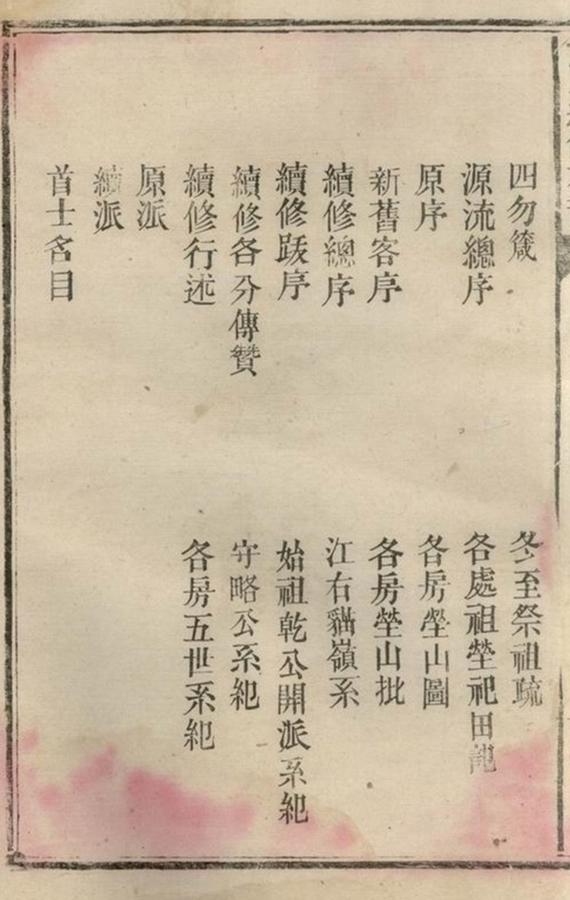 四勿箴
源流總序
原序
新舊客序
續修總序
續修跋序
續修各分傳贊
續修行述
原派
續派
首士名目
冬至祭祖疏
各處祖塋祀田
各房塋山圖
各房塋山批
江右貓嶺系
始祖乾公開派系紀
守略公系紀
各房五世系紀